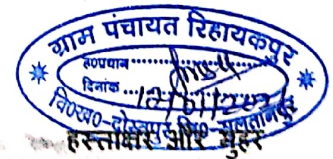 ग्राम पंचायत रिहायकपुर
ह०प्रधान
दिनांक
वि०ख०-दोस्तपुर जि०-सुलतानपुर
हस्ताक्षर और मुहर